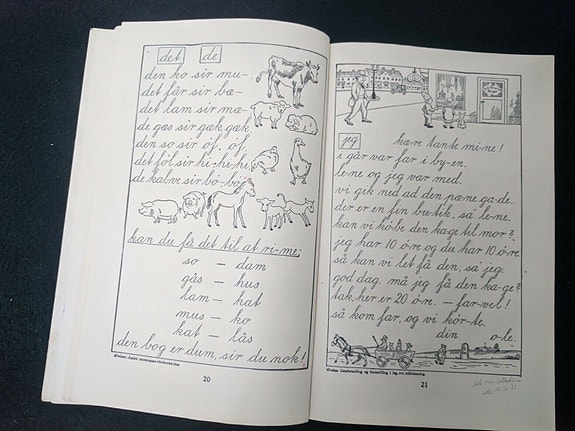 det de
den ko sir mu-.
det får sir bæ-
det lam sir mæ-
de gæs sir gæk, gæk,
den so sir øf, øf,
det føl sir hi-hi-hi,
de kalve sir bö-bö,
kan du få det til at ri-me;
so - dam
gås - hus
lam - hat
mus - ko
kat - lås
den bog er dum, sir du nok!
20
jeg kære tante mi-ne!
i går var far i by-en.
le-ne og jeg var med.
vi gik ned ad den pæne ga-de.
der er en fin bu-tik, sa le-ne.
kan vi kö-be den kage til mor?
jeg har 10 ö-re og du har 10 ö-re.
så kan vi let få den, sa jeg.
god dag. må jeg få den ka-ge?
tak, her er 20 ö-re. - far-vel!
så kom far, og vi kör-te.
din o-le.
21